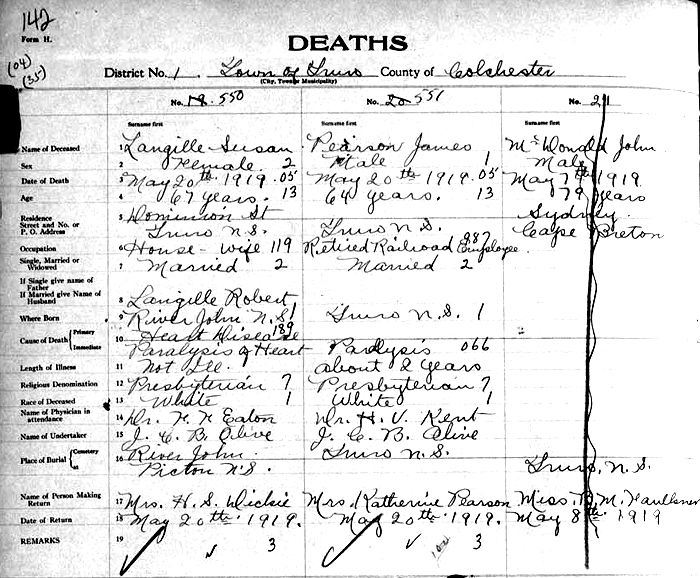 142
Form H.
(04)
(35)
DEATHS
District No. 1. Town of Truro County of Colchester
(City, Town or Municipality)
No. 19. 550 No. 20 551 No. 21
Surname first Surname first Surname first
Name of Deceased 1 Langille Susan Pearson James McDonald John
Sex 2 Female 2 Male 1 Male
Date of Death 3 May 20th 1919. 05 May 20th 1919. 05 May 7th 1919
Age 4 67 years. 13 64 years. 13 79 years
Residence
Street and No. or
P. O. Address
5 Dominion St Sydney
Truro N.S. Truro N.S. Cape Breton
Occupation 6 House-wife 119 Retired Railroad Employee 987
Single, Married or
Widowed
7 Married 2 Married 2
If Single give name of
Father
If Married give Name of
Husband
8 Langille Robert
Where Born 9 River John N.S. 1 Truro N.S. 1
Cause of Death Primary 10 Heart Disease 189
Immediate Paralysis of Heart Paralysis 066
Length of Illness 11 Not Ill. about 2 years
Religious Denomination 12 Presbyterian 7 Presbyterian 7
Race of Deceased 13 White 1 White 1
Name of Physician in
attendance
14 Dr. Eaton Dr. H. V. Kent
Name of Undertaker 15 J. C. B. Olive J. C. B. Olive
Place of Burial Cemetery at 16 River John Truro N.S.
Picton N.S. Truro, N.S.
Name of Person Making
Return
17 Mrs. H. S. Dickie Mrs. Katherine Pearson Miss B. M. Faulkner
Date of Return 18 May 20th 1919. May 20th 1919. May 8th 1919
REMARKS 19 3 3